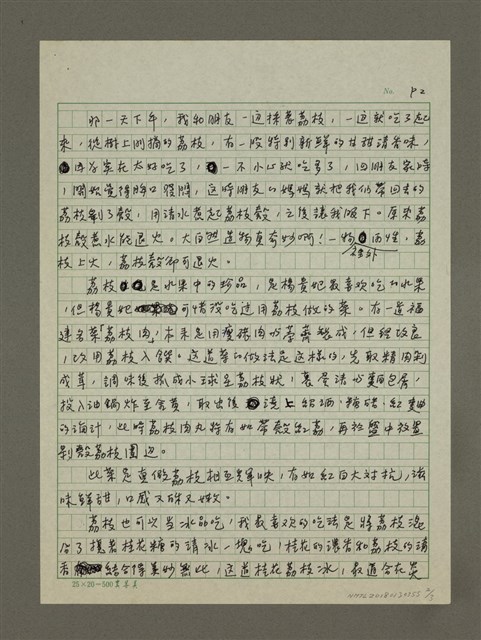 No. P2
那一天下午，我和朋友一邊採著荔枝，一邊就吃了起
來，從樹上剛摘的荔枝，有一股特別新鮮的甘甜清香味，
因為實在太好吃了，一不小心就吃多了，回朋友家時
，開始覺得胸口發悶，這時朋友的媽媽就把我們帶回來的
荔枝剝了殼，用清水煮起荔枝殼，之後請我喝下。原來荔
枝殼煮水能退火。大自然造物真奇妙啊！一物兩性，荔
枝上火，荔枝殼卻可退火。
荔枝是水果中的珍品，是楊貴妃最喜歡吃的水果
，但楊貴妃可惜沒吃過用荔枝做的菜。有一道福
建名菜「荔枝肉」，本來是用瘦豬肉
，改用荔枝入饌。這道菜的做法是這樣的，先取精肉剁
成茸，調味後搓成小球呈荔枝狀，
投入油鍋炸至金黃，取出後澆上紹酒、糖醋、紅麴
的滷汁，此時荔枝肉丸特有如帶殼紅荔，再於盤中放置
剝殼荔枝圍邊。
此菜是真假荔枝相互輝映，有如紅白大對抗，滋
味鮮甜，口感又酥又嫩。
荔枝也可以當冰品吃，我最喜歡的吃法是將荔枝混
合了攙著桂花糖的清冰一塊吃，桂花的濃香和荔枝的清
香結合得美妙無比，這道桂花荔枝冰，最適合在炎
25×20=500
2/3